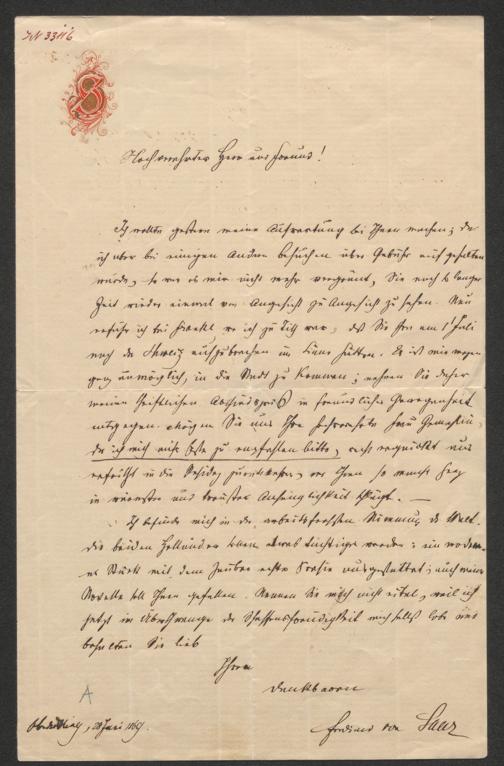 IN 33116
S
Hochverehrter Herr und Freund!
Ich wollte gestern meine Aufwartung bei Ihnen machen; da
ich aber bei einigen andern Besuchen über Gebühr aufgehalten
wurde, so war es mir nicht mehr vergönnt, Sie nach so langer
Zeit wieder einmal von Angesicht zu Angesicht zu sehen. Nun
erfuhr ich bei Frankl, wo ich zu Tisch war, daß Sie schon am 1 Juli
nach der Schweiz aufzubrechen im Sinne hätten. Es ist mir
ganz unmöglich, in die Stadt zu kommen; nehmen Sie daher
meinen schriftlichen Abschiedsgruß in freundlicher Gewogenheit
entgegen. Mögen Sie und Ihre hochverehrte Frau Gemahlin,
der ich mich aufs Beste zu empfehlen bitte, recht erquickt und
erfrischt in die Residenz zurückkehren, wo Ihnen so manches Herz
in wärmster und treuster Anhänglichkeit schlägt. —
Ich befinde mich in der arbeitsfrohsten Stimmung der Welt.
die beiden sollen etwas tüchtiges werden; ein
Stück mit dem Zauber echter Poesie ausgestattet; auch meine
Novelle soll Ihnen gefallen. Nennen Sie mich nicht eitel, weil ich
jetzt im Überschwange der Schaffensfreudigkeit mich selbst lobe und
behalten Sie lieb
Ihren
dankbaren
Ferdinand von Saar
Juni 1869.
A